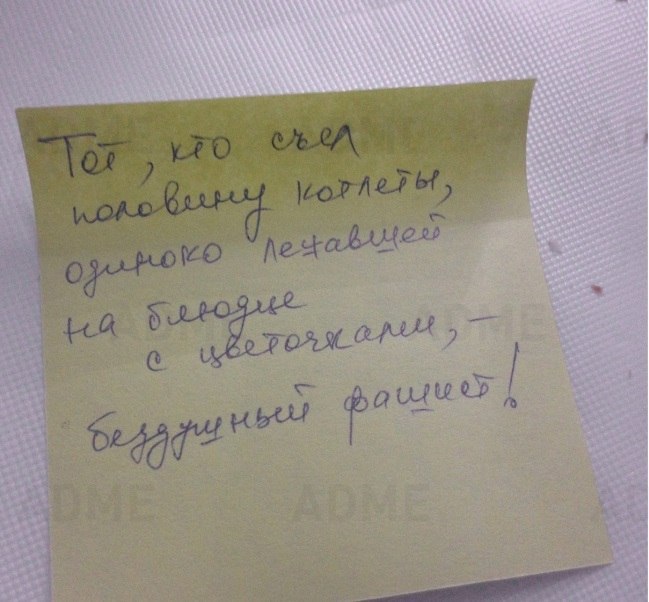 Тот, кто съел
половину котлеты,
одиноко лежавшей
на блюдце
с цветочками, –
бездушный фашист!
ADME
ADME
ADME
ADME